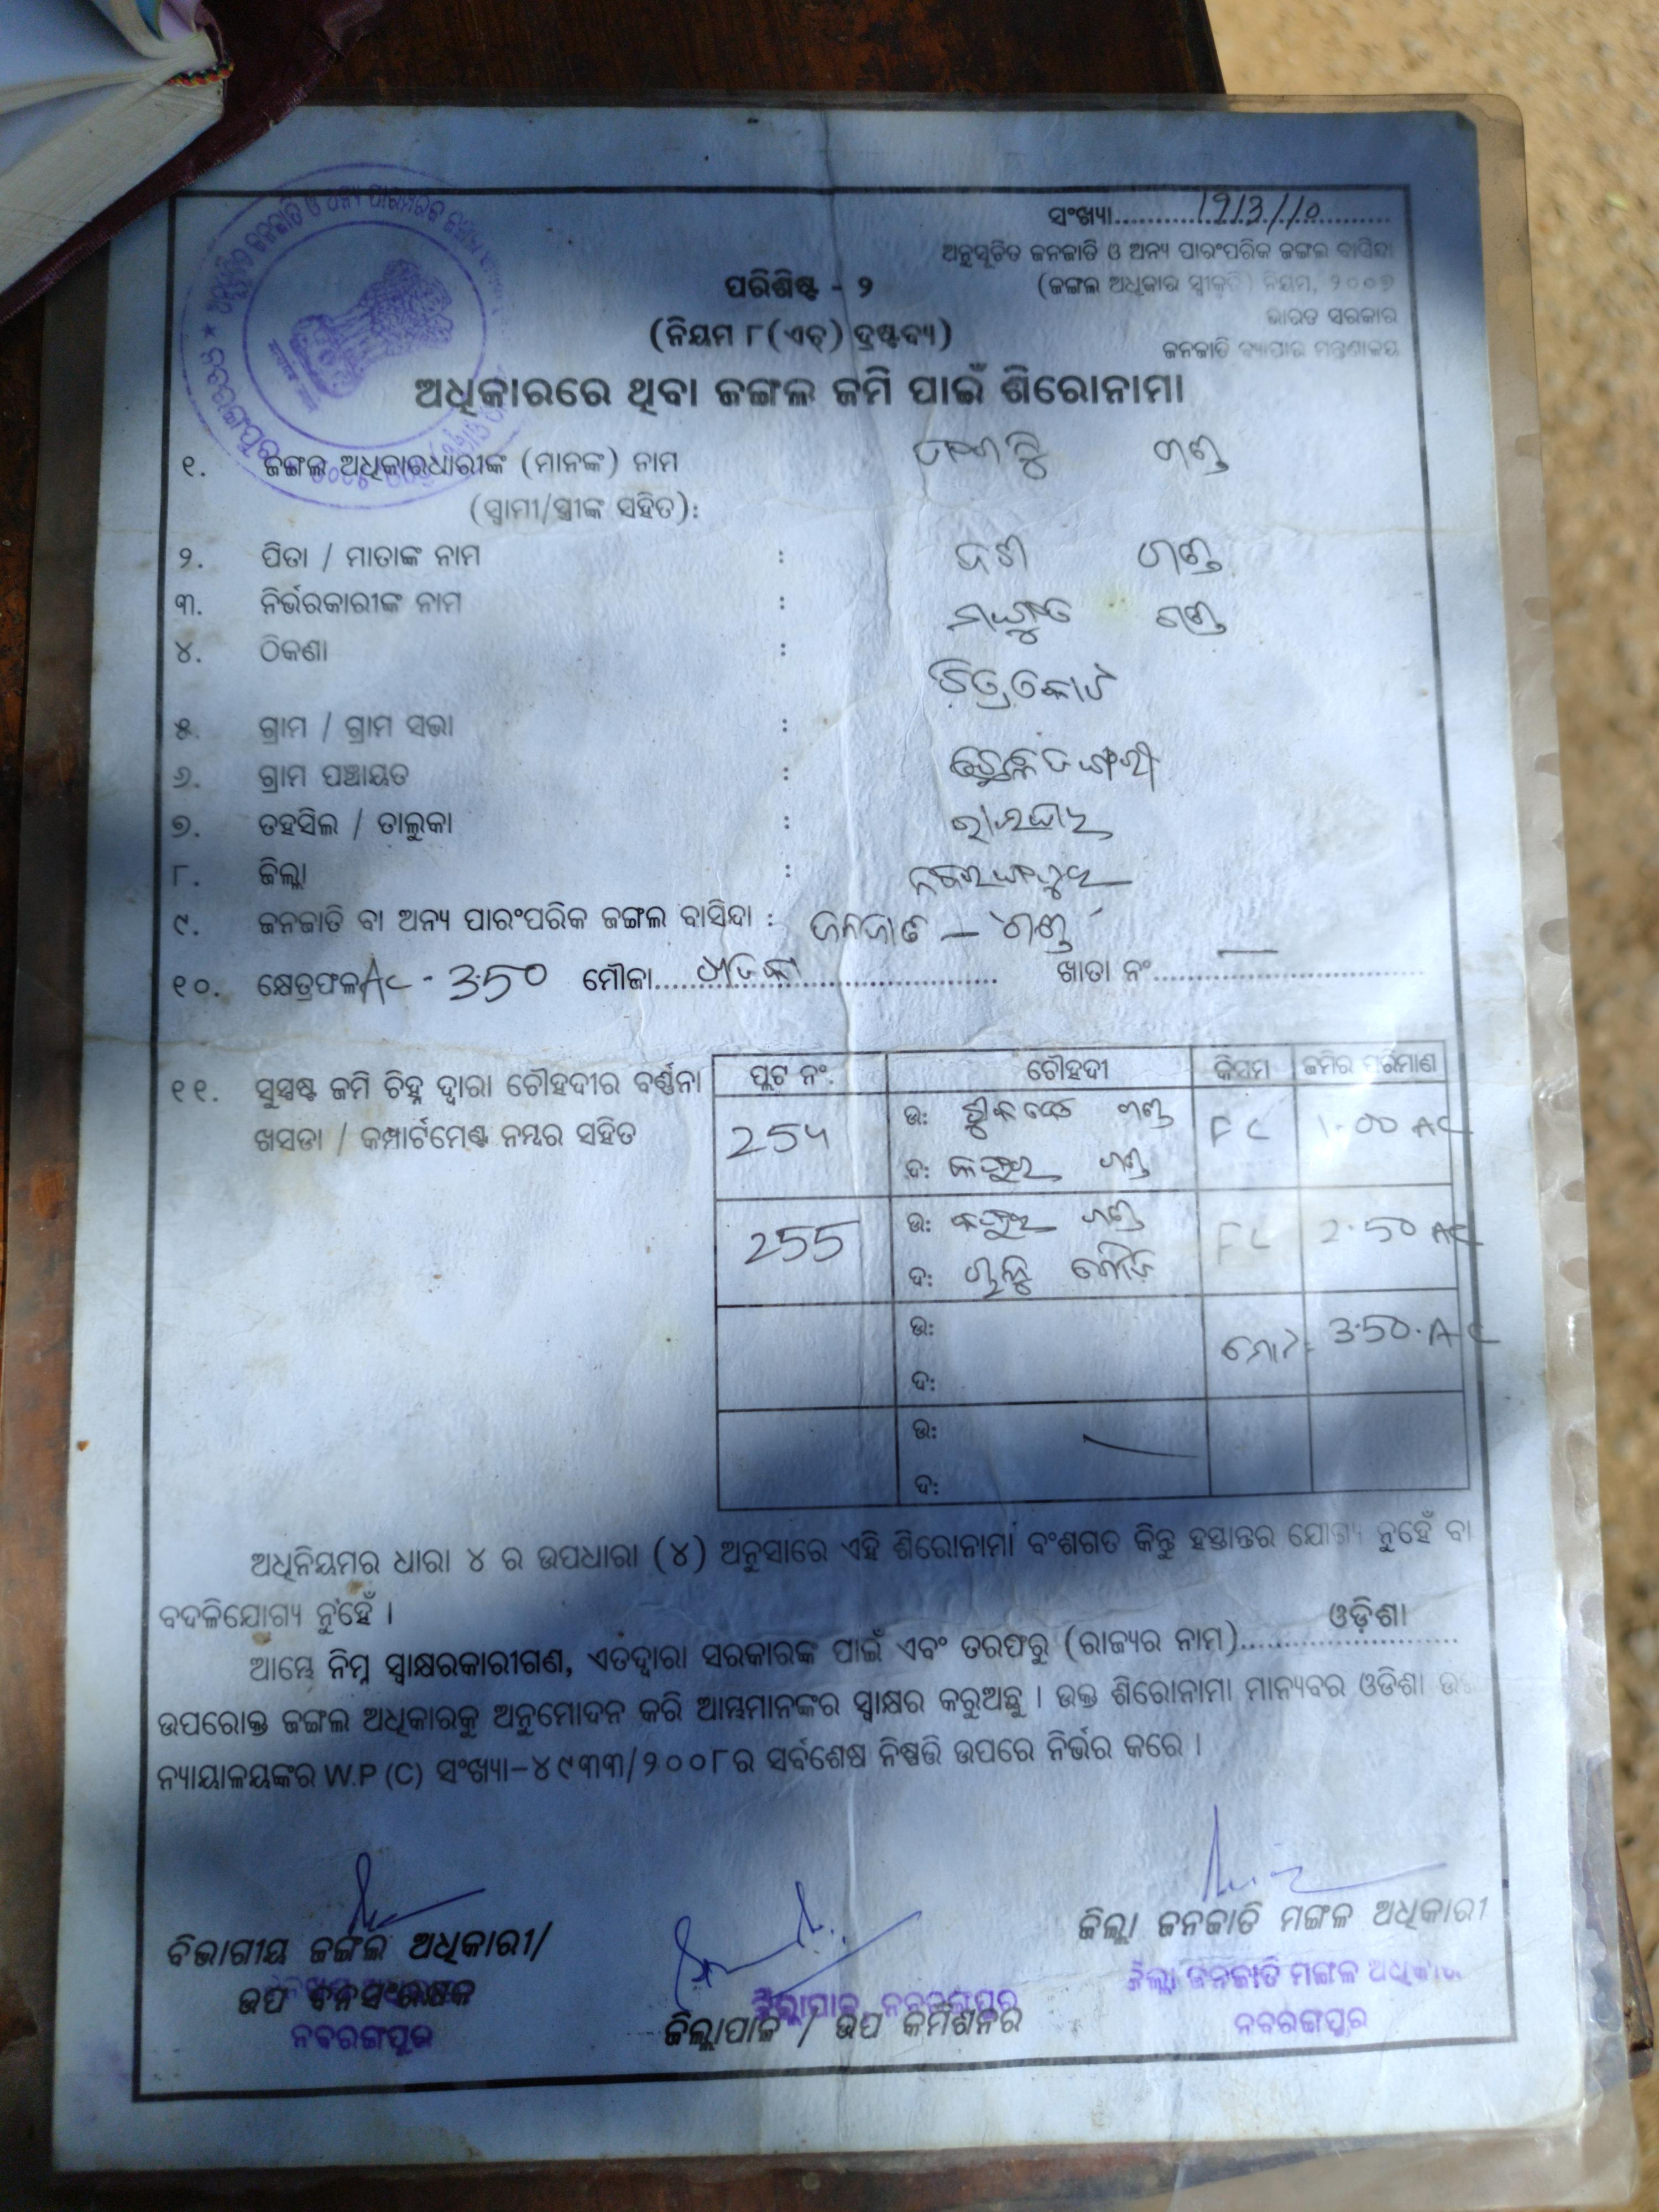 ସଂଖ୍ୟା............1913/10............
ଅନୁସୂଚିତ ଜନଜାତି ଓ ଅନ୍ୟ ପାରଂପରିକ ଜଙ୍ଗଲ ବାସିନ୍ଦା
ପରିଶିଷ୍ଟ - ୨
(ଜଙ୍ଗଲ ଅଧିକାର ସ୍ୱୀକୃତି) ନିୟମ, ୨୦୦୭
ଭାରତ ସରକାର
(ନିୟମ ୮(ଏଚ୍) ଦ୍ରଷ୍ଟବ୍ୟ)
ଜନଜାତି ବ୍ୟାପାର ମନ୍ତ୍ରଣାଳୟ
ଅଧିକାରରେ ଥିବା ଜଙ୍ଗଲ ଜମି ପାଇଁ ଶିରୋନାମା
୧. ଜଙ୍ଗଲ ଅଧିକାରଧାରୀଙ୍କ (ମାନଙ୍କ) ନାମ ଗଣ୍ଡ
(ସ୍ୱାମୀ/ସ୍ତ୍ରୀଙ୍କ ସହିତ):
୨. ପିତା / ମାତାଙ୍କ ନାମ : ଗଣ୍ଡ
୩. ନିର୍ଭରକାରୀଙ୍କ ନାମ : ଗଣ୍ଡ
୪. ଠିକଣା :
୫. ଗ୍ରାମ / ଗ୍ରାମ ସଭା :
୬. ଗ୍ରାମ ପଞ୍ଚାୟତ :
୭. ତହସିଲ / ତାଲୁକା : ରାଇଘର
୮. ଜିଲ୍ଲା : ନବରଙ୍ଗପୁର
୯. ଜନଜାତି ବା ଅନ୍ୟ ପାରଂପରିକ ଜଙ୍ଗଲ ବାସିନ୍ଦା : ଜନଜାତି — ଗଣ୍ଡ
୧୦. କ୍ଷେତ୍ରଫଳ Ac - 3.50 ମୌଜା.......... ଖାତା ନଂ.......... —
୧୧. ସୁସ୍ପଷ୍ଟ ଜମି ଚିହ୍ନ ଦ୍ୱାରା ଚୌହଦୀର ବର୍ଣ୍ଣନା
ଖସଡା / କମ୍ପାର୍ଟମେଣ୍ଟ ନମ୍ବର ସହିତ
ପ୍ଲଟ ନଂ. ଚୌହଦୀ କିସମ ଜମିର ପରିମାଣ
ଉ: ଗଣ୍ଡ FC 1.00 AC
ଦ: ଗଣ୍ଡ
255 ଉ: ଗଣ୍ଡ FC 2.50 AC
ଦ:
ଉ: 3.50.AC
ଦ:
ଉ:
ଦ:
ଅଧିନିୟମର ଧାରା ୪ ର ଉପଧାରା (୪) ଅନୁସାରେ ଏହି ଶିରୋନାମା ବଂଶଗତ କିନ୍ତୁ ହସ୍ତାନ୍ତର ଯୋଗ୍ୟ ନୁହେଁ ବା
ବଦଳିଯୋଗ୍ୟ ନୁହେଁ ।
ଆମ୍ଭେ ନିମ୍ନ ସ୍ୱାକ୍ଷରକାରୀଗଣ, ଏତଦ୍ୱାରା ସରକାରଙ୍କ ପାଇଁ ଏବଂ ତରଫରୁ (ରାଜ୍ୟର ନାମ)......ଓଡ଼ିଶା......
ଉପରୋକ୍ତ ଜଙ୍ଗଲ ଅଧିକାରକୁ ଅନୁମୋଦନ କରି ଆମ୍ଭମାନଙ୍କର ସ୍ୱାକ୍ଷର କରୁଅଛୁ । ଉକ୍ତ ଶିରୋନାମା ମାନ୍ୟବର ଓଡିଶା
ନ୍ୟାୟାଳୟଙ୍କର W.P (C) ସଂଖ୍ୟା-୪୯୩୩/୨୦୦୮ର ସର୍ବଶେଷ ନିଷ୍ପତ୍ତି ଉପରେ ନିର୍ଭର କରେ ।
ବିଭାଗୀୟ ଜଙ୍ଗଲ ଅଧିକାରୀ/
ଉପ ବନସଂରକ୍ଷକ
ନବରଙ୍ଗପୁର
ଜିଲ୍ଲାପାଳ, ନବରଙ୍ଗପୁର
ଜିଲ୍ଲାପାଳ / ଉପ କମିଶନର
ଜିଲ୍ଲା ଜନଜାତି ମଙ୍ଗଳ ଅଧିକାରୀ
ଜିଲ୍ଲା ଜନଜାତି ମଙ୍ଗଳ ଅଧିକାରୀ
ନବରଙ୍ଗପୁର